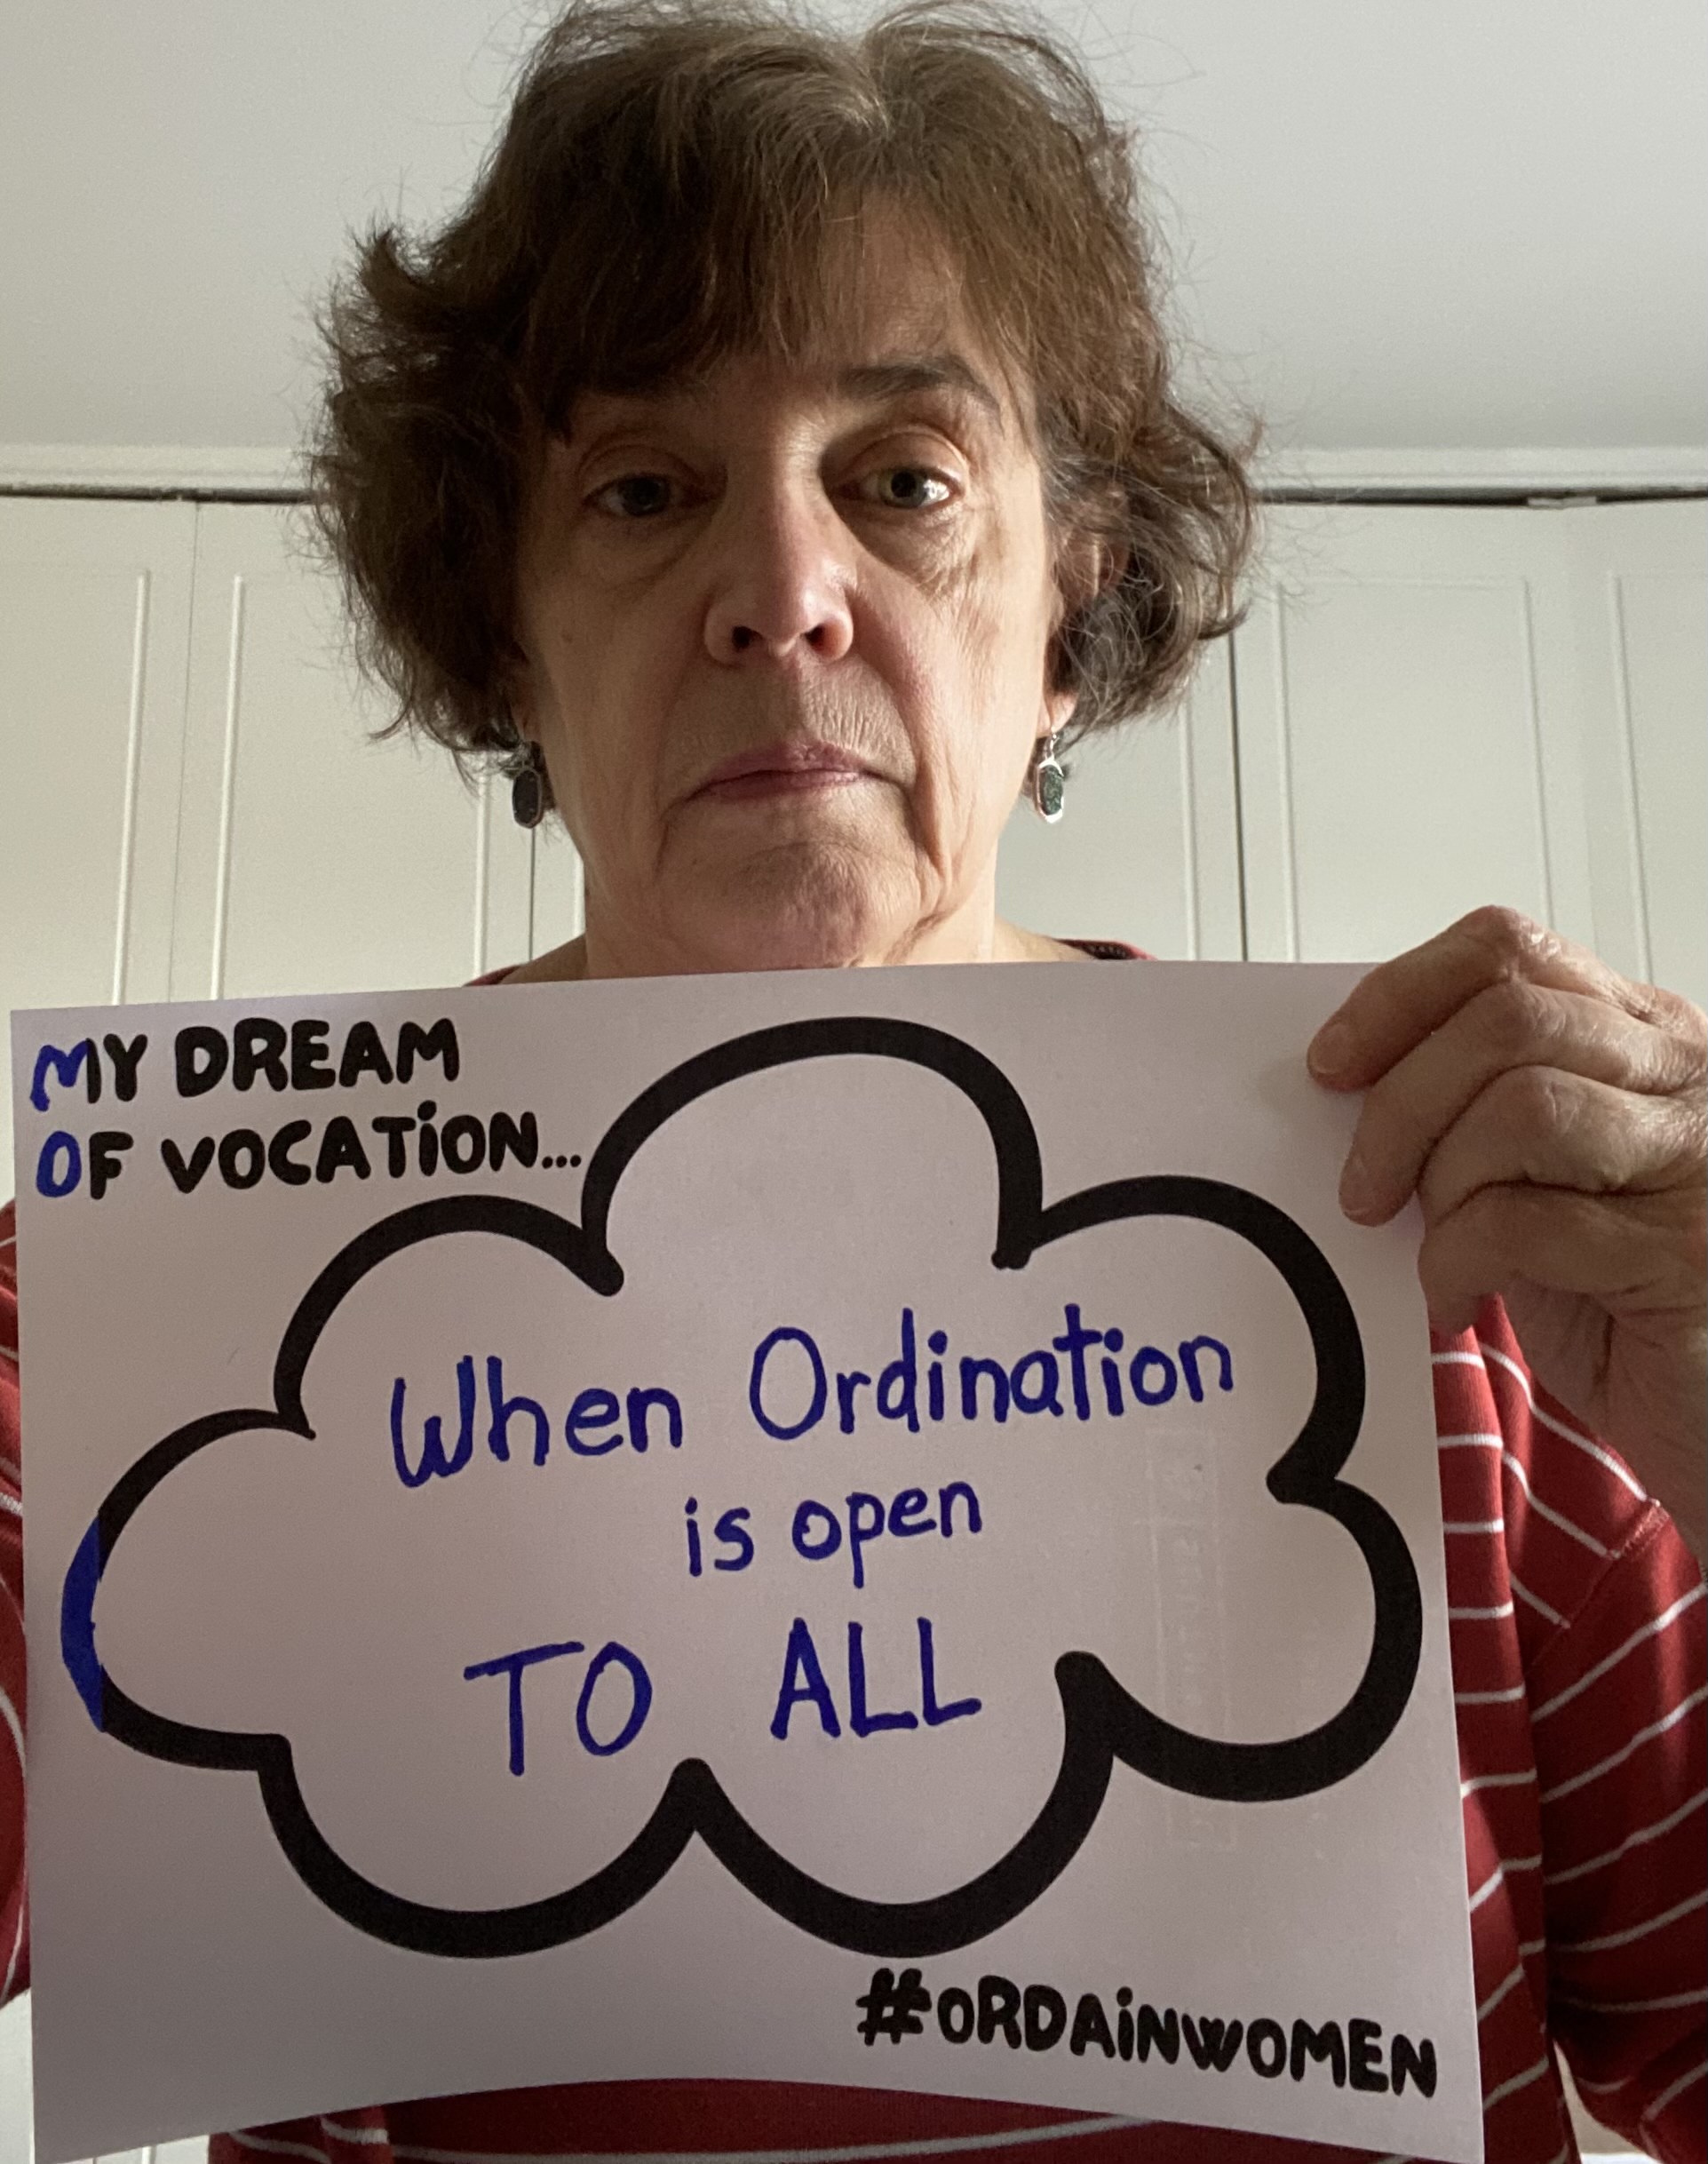 MY DREAM
OF VOCATION...
When Ordination
is open
TO ALL
#ORDAINWOMEN